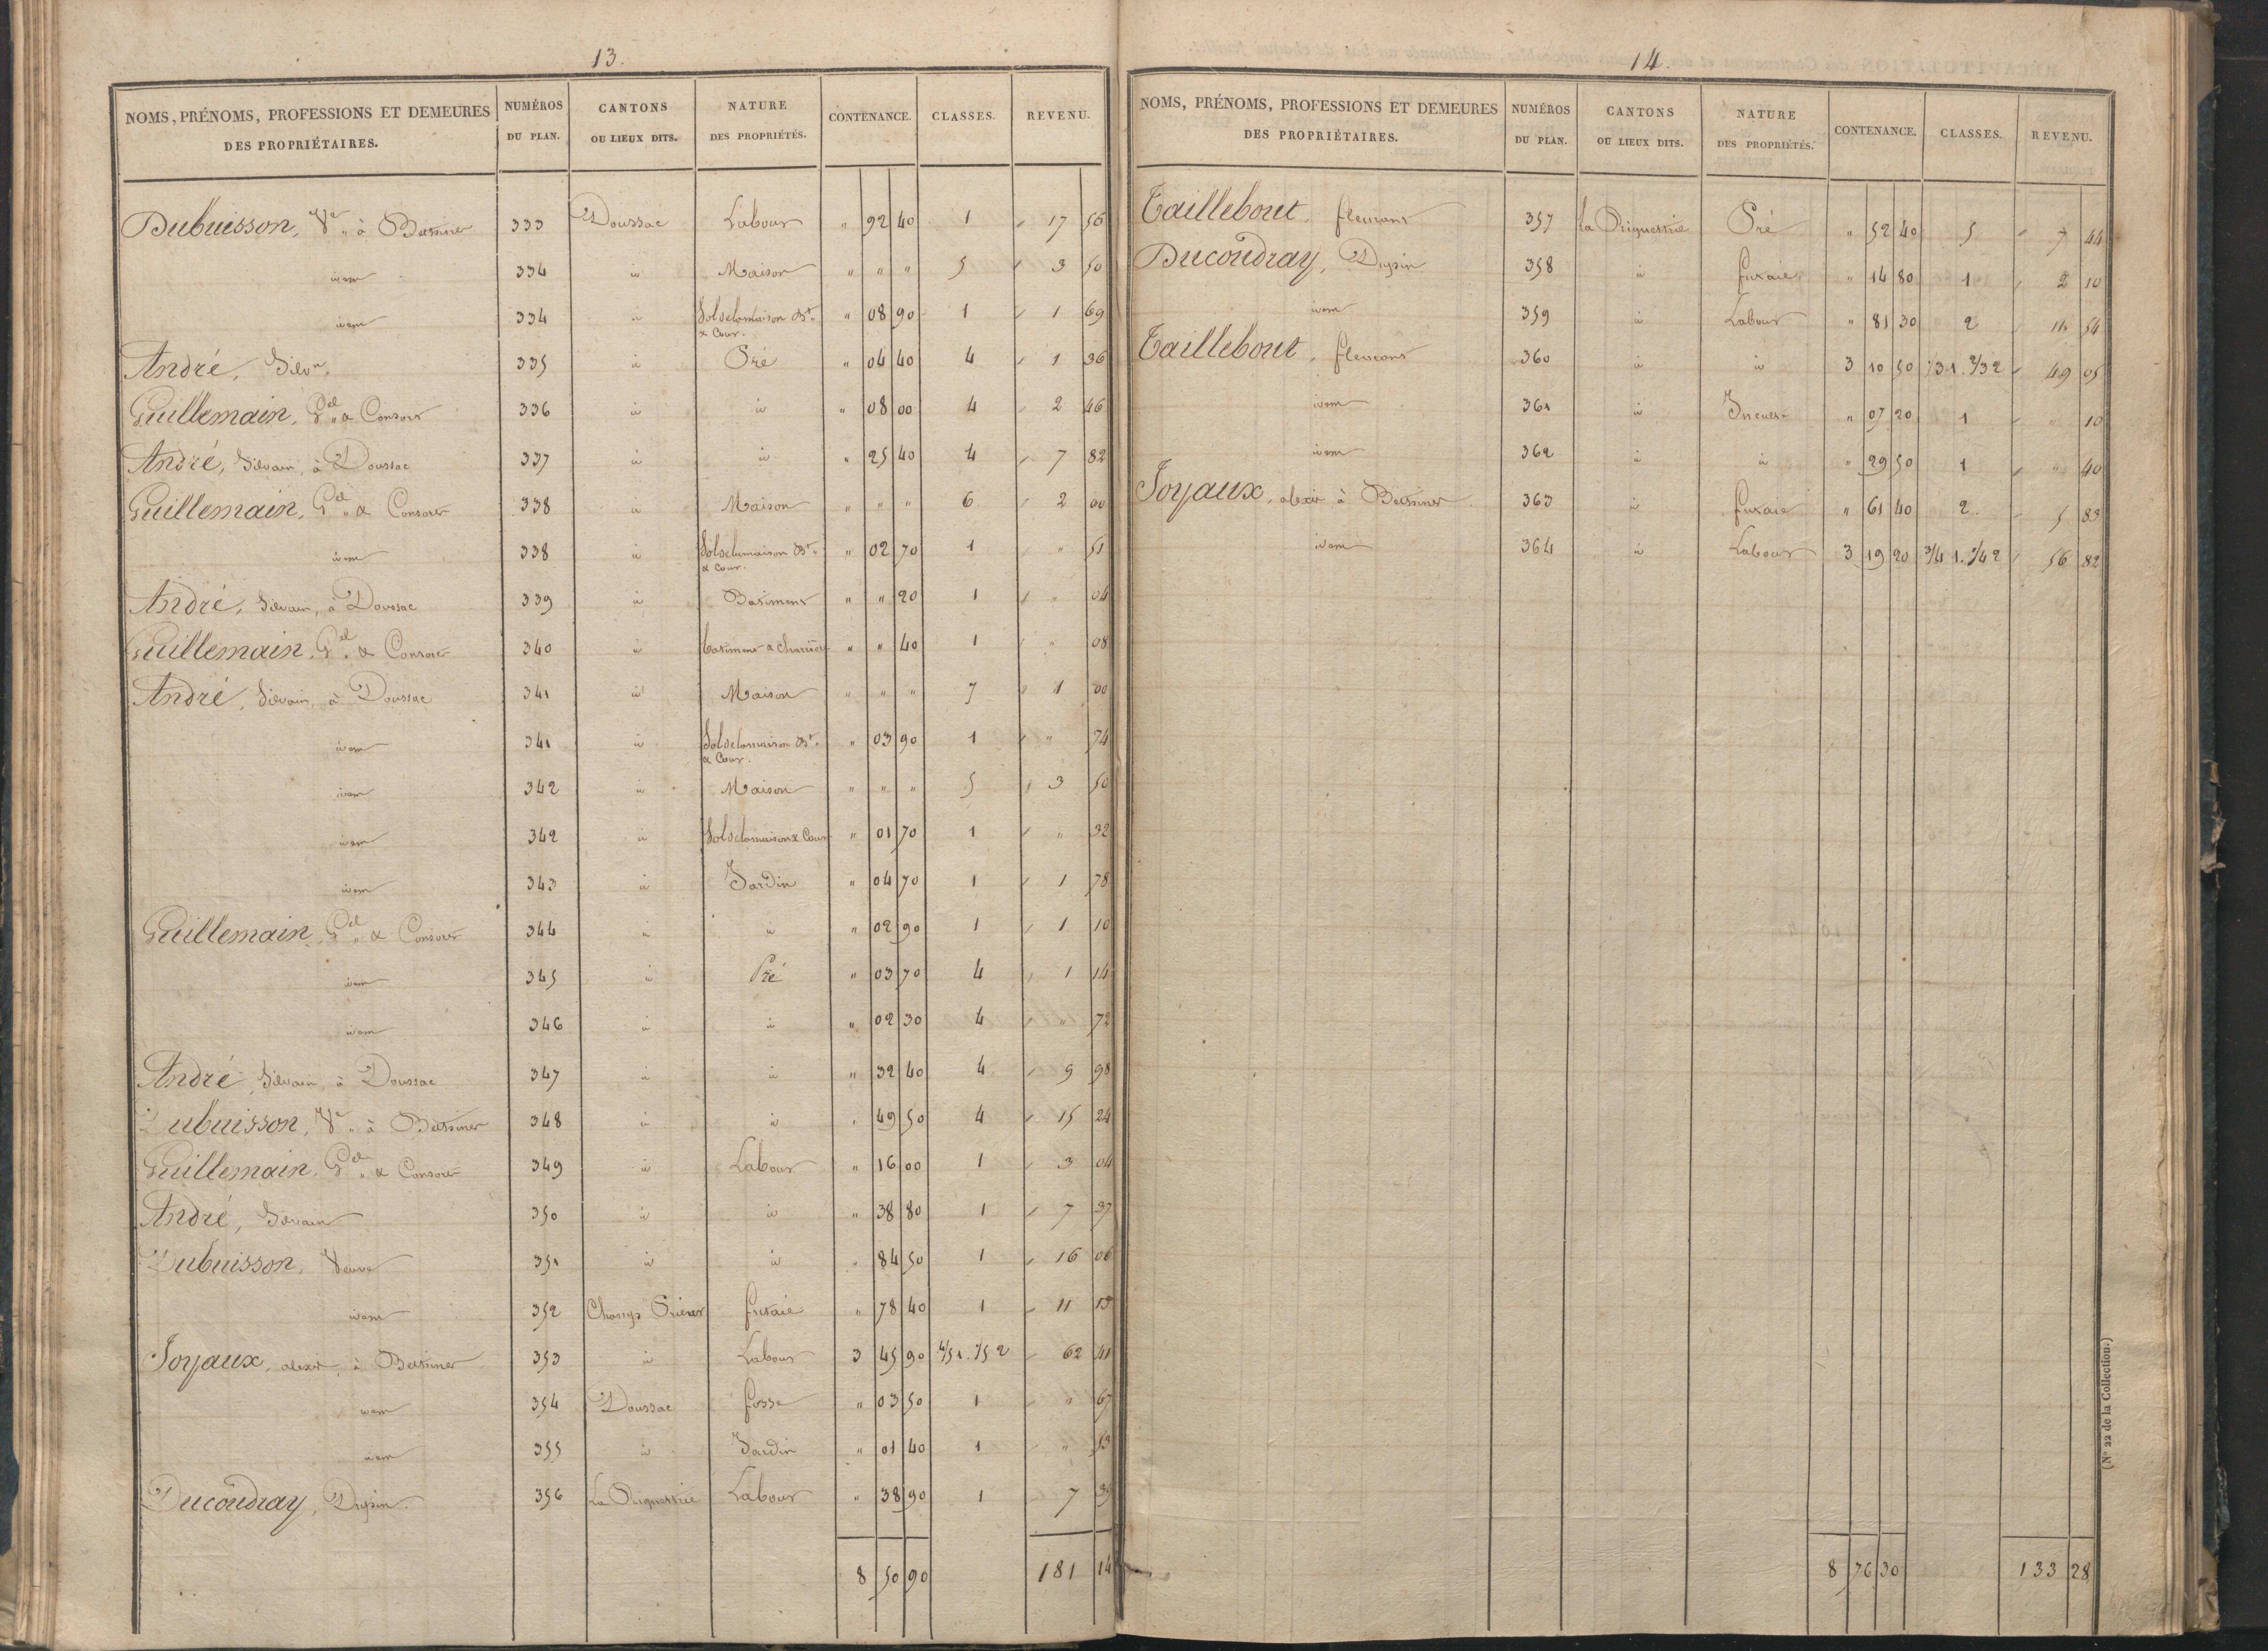 13.
NOMS, PRÉNOMS, PROFESSIONS ET DEMEURES DES PROPRIÉTAIRES. NUMÉROS DU PLAN. CANTONS OU LIEUX DITS. NATURE DES PROPRIÉTÉS. CONTENANCE. CLASSES. REVENU.
Dubuisson, Ve. à Bessines 333 Doussac Labour " 92 40 1 17 56
idem 334 id Maison " " " 5 3 50
idem 334 id Sol de la maison Bt. & Cour. " 08 90 1 1 69
André, Silvn. 335 id Pré " 04 40 4 1 36
Guillemain, Gel. & Consors 336 id id " 08 00 4 2 46
André, Silvain, à Doussac 337 id id " 25 40 4 7 82
Guillemain, Gel. & Consors 338 id Maison " " " 6 2 00
idem 338 id Sol de la maison Bt. & Cour. " 02 70 1 " 51
André, Silvain, à Doussac 339 id Batiment " " 20 1 " 04
Guillemain, Gel. & Consors 340 id batiment & " " 40 1 " 08
André, Silvain, à Doussac 341 id Maison " " " 7 1 00
idem 341 id Sol de la maison Bt. & Cour. " 03 90 1 " 74
idem 342 id Maison " " " 5 3 50
idem 342 id Sol de la maison & Cour " 01 70 1 " 32
idem 343 id Jardin " 04 70 1 1 78
Guillemain, Gel. & Consors 344 id id " 02 90 1 1 10
idem 345 id Pré " 03 70 4 1 14
idem 346 id id " 02 30 4 " 72
André, Silvain, à Doussac 347 id id " 32 40 4 9 98
Dubuisson, Ve. à Bessines 348 id id " 49 50 4 15 24
Guillemain, Gel. & Consors 349 id Labour " 16 00 1 3 04
André, Silvain 350 id id " 38 80 1 7 37
Dubuisson, Veuve 351 id id " 84 50 1 16 06
idem 352 Champs futaie " 78 40 1 11 13
Joyaux, alexis, à Bessines 353 id Labour 3 45 90 4/5 1. 1/5 2 62 41
idem 354 Doussac fosse " 03 50 1 " 67
idem 355 id Jardin " 01 40 1 " 53
Ducoudray, Dupin. 356 La Labour " 38 90 1 7 39
8 50 90 181 14
14.
NOMS, PRÉNOMS, PROFESSIONS ET DEMEURES DES PROPRIÉTAIRES. NUMÉROS DU PLAN. CANTONS OU LIEUX DITS. NATURE DES PROPRIÉTÉS. CONTENANCE. CLASSES. REVENU.
Taillebout, fleurant 357 la Pré " 52 40 5 7 44
Ducoudray, Dupin 358 id futaie " 14 80 1 2 10
idem 359 id Labour " 81 30 2 11 54
Taillebout, fleurant 360 id id 3 10 50 1/3 1. 2/3 2 49 05
idem 361 id Incult " 07 20 1 " 10
idem 362 id id " 29 50 1 " 40
Joyaux, alexis à Bessines 363 id futaie " 61 40 2 5 83
idem 364 id Labour 3 19 20 3/4 1. 1/4 2 56 82
8 76 30 133 28
(N° 22 de la Collection.)